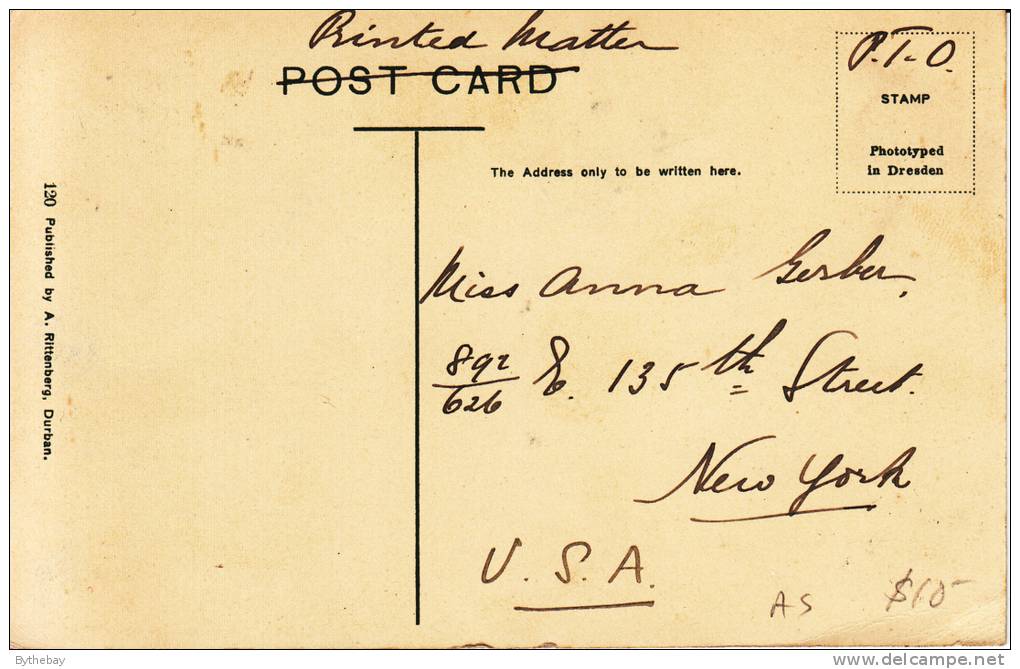 Printed Matter
POST CARD
P.T.O.
STAMP
Phototyped
in Dresden
The Address only to be written here.
120 Published by A. Rittenberg, Durban.
Miss Anna Gerber,
892/626 E. 135th Street.
New York
U.S.A.
AS $10
Bythebay
www.delcampe.net